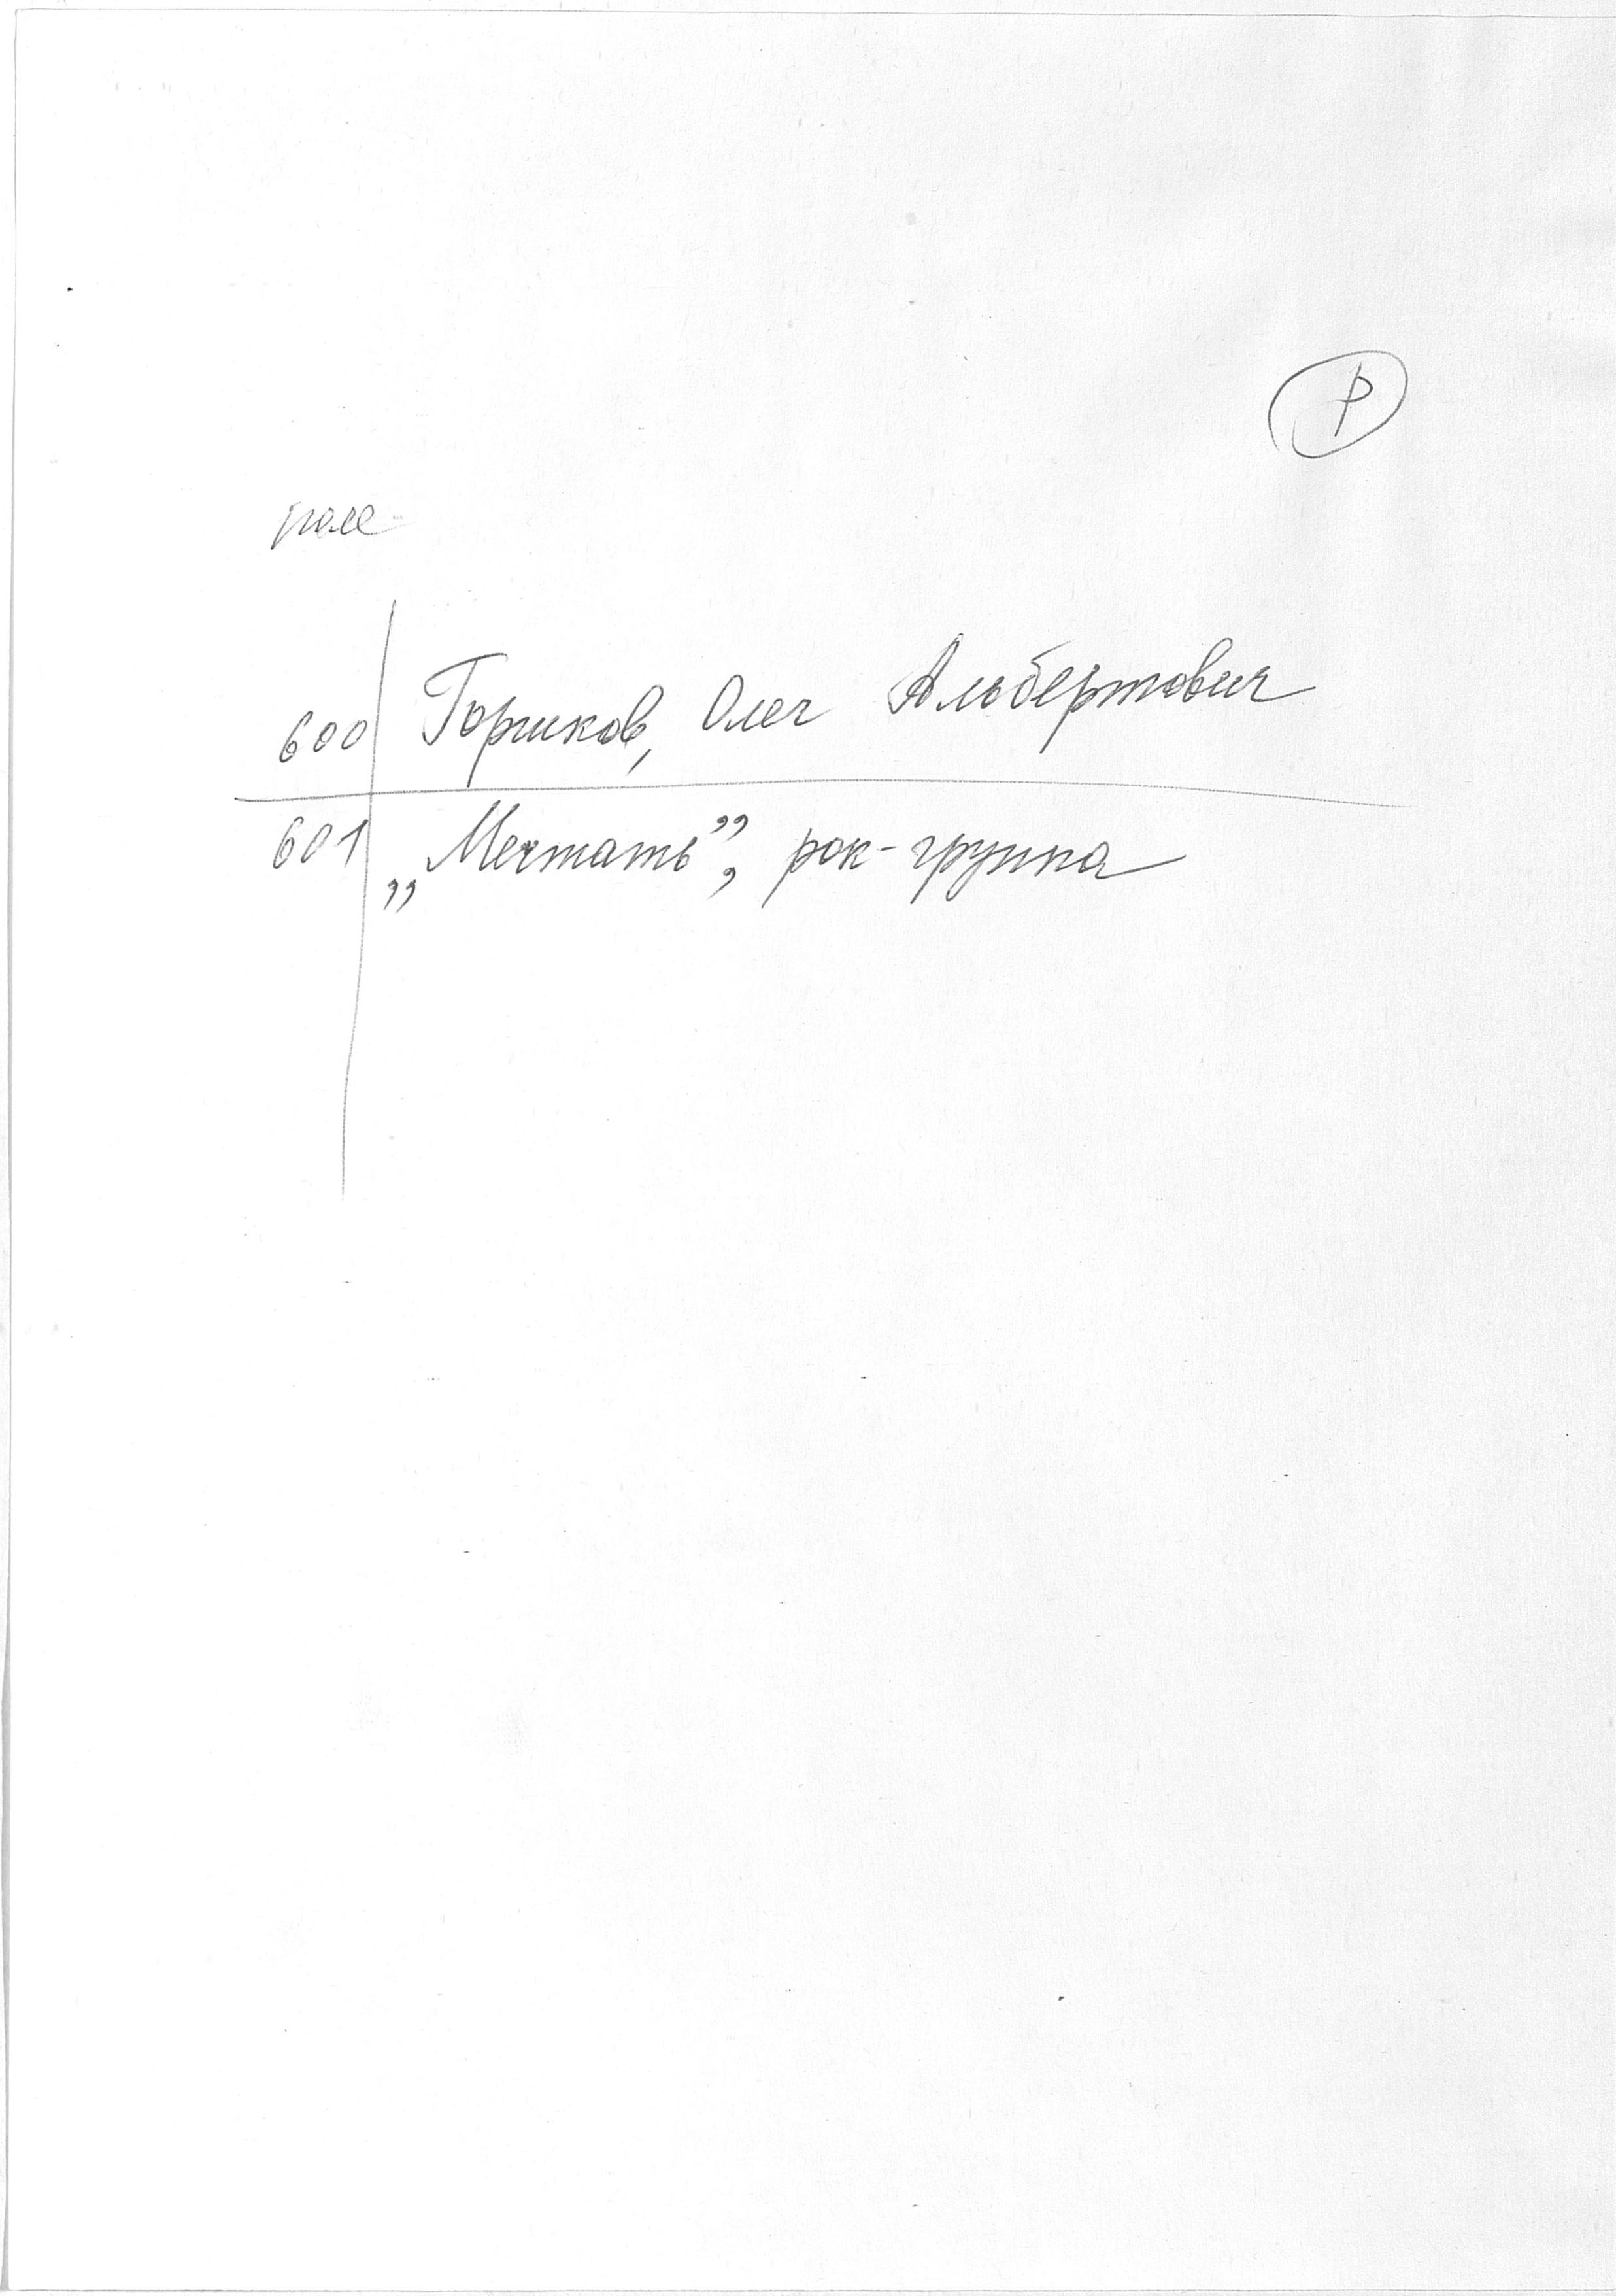 Р
поле
600 Горшков, Олег Альбертович
601 „Мечтать”, рок-группа